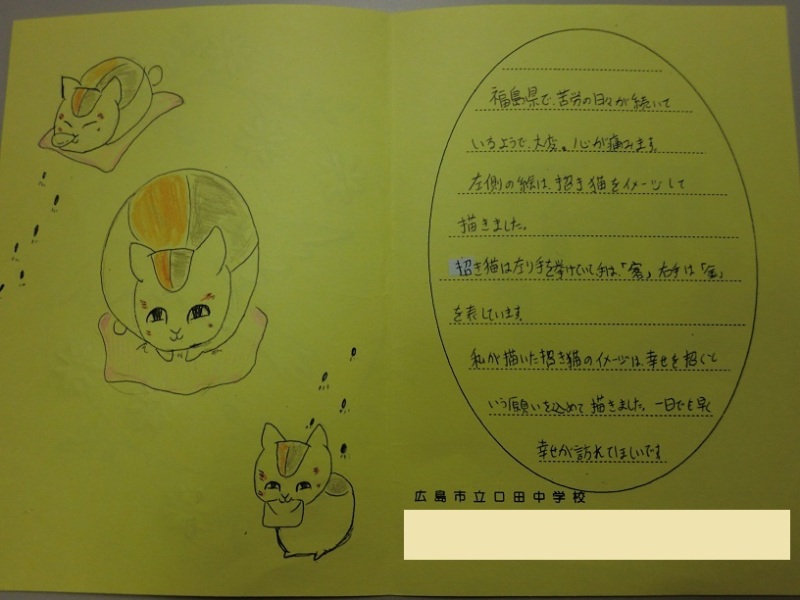 福島県で、苦労の日々が続いて
いるようで、大変。心が痛みます。
左側の絵は、招き猫をイメージして
描きました。
招き猫は左り手を挙げていて手は、「客」右手は「金」
を表しています。
私が描いた招き猫のイメージは、幸せを招くと
いう願いを込めて描きました。一日でも早く
幸せが訪れてほしいです
広島市立口田中学校